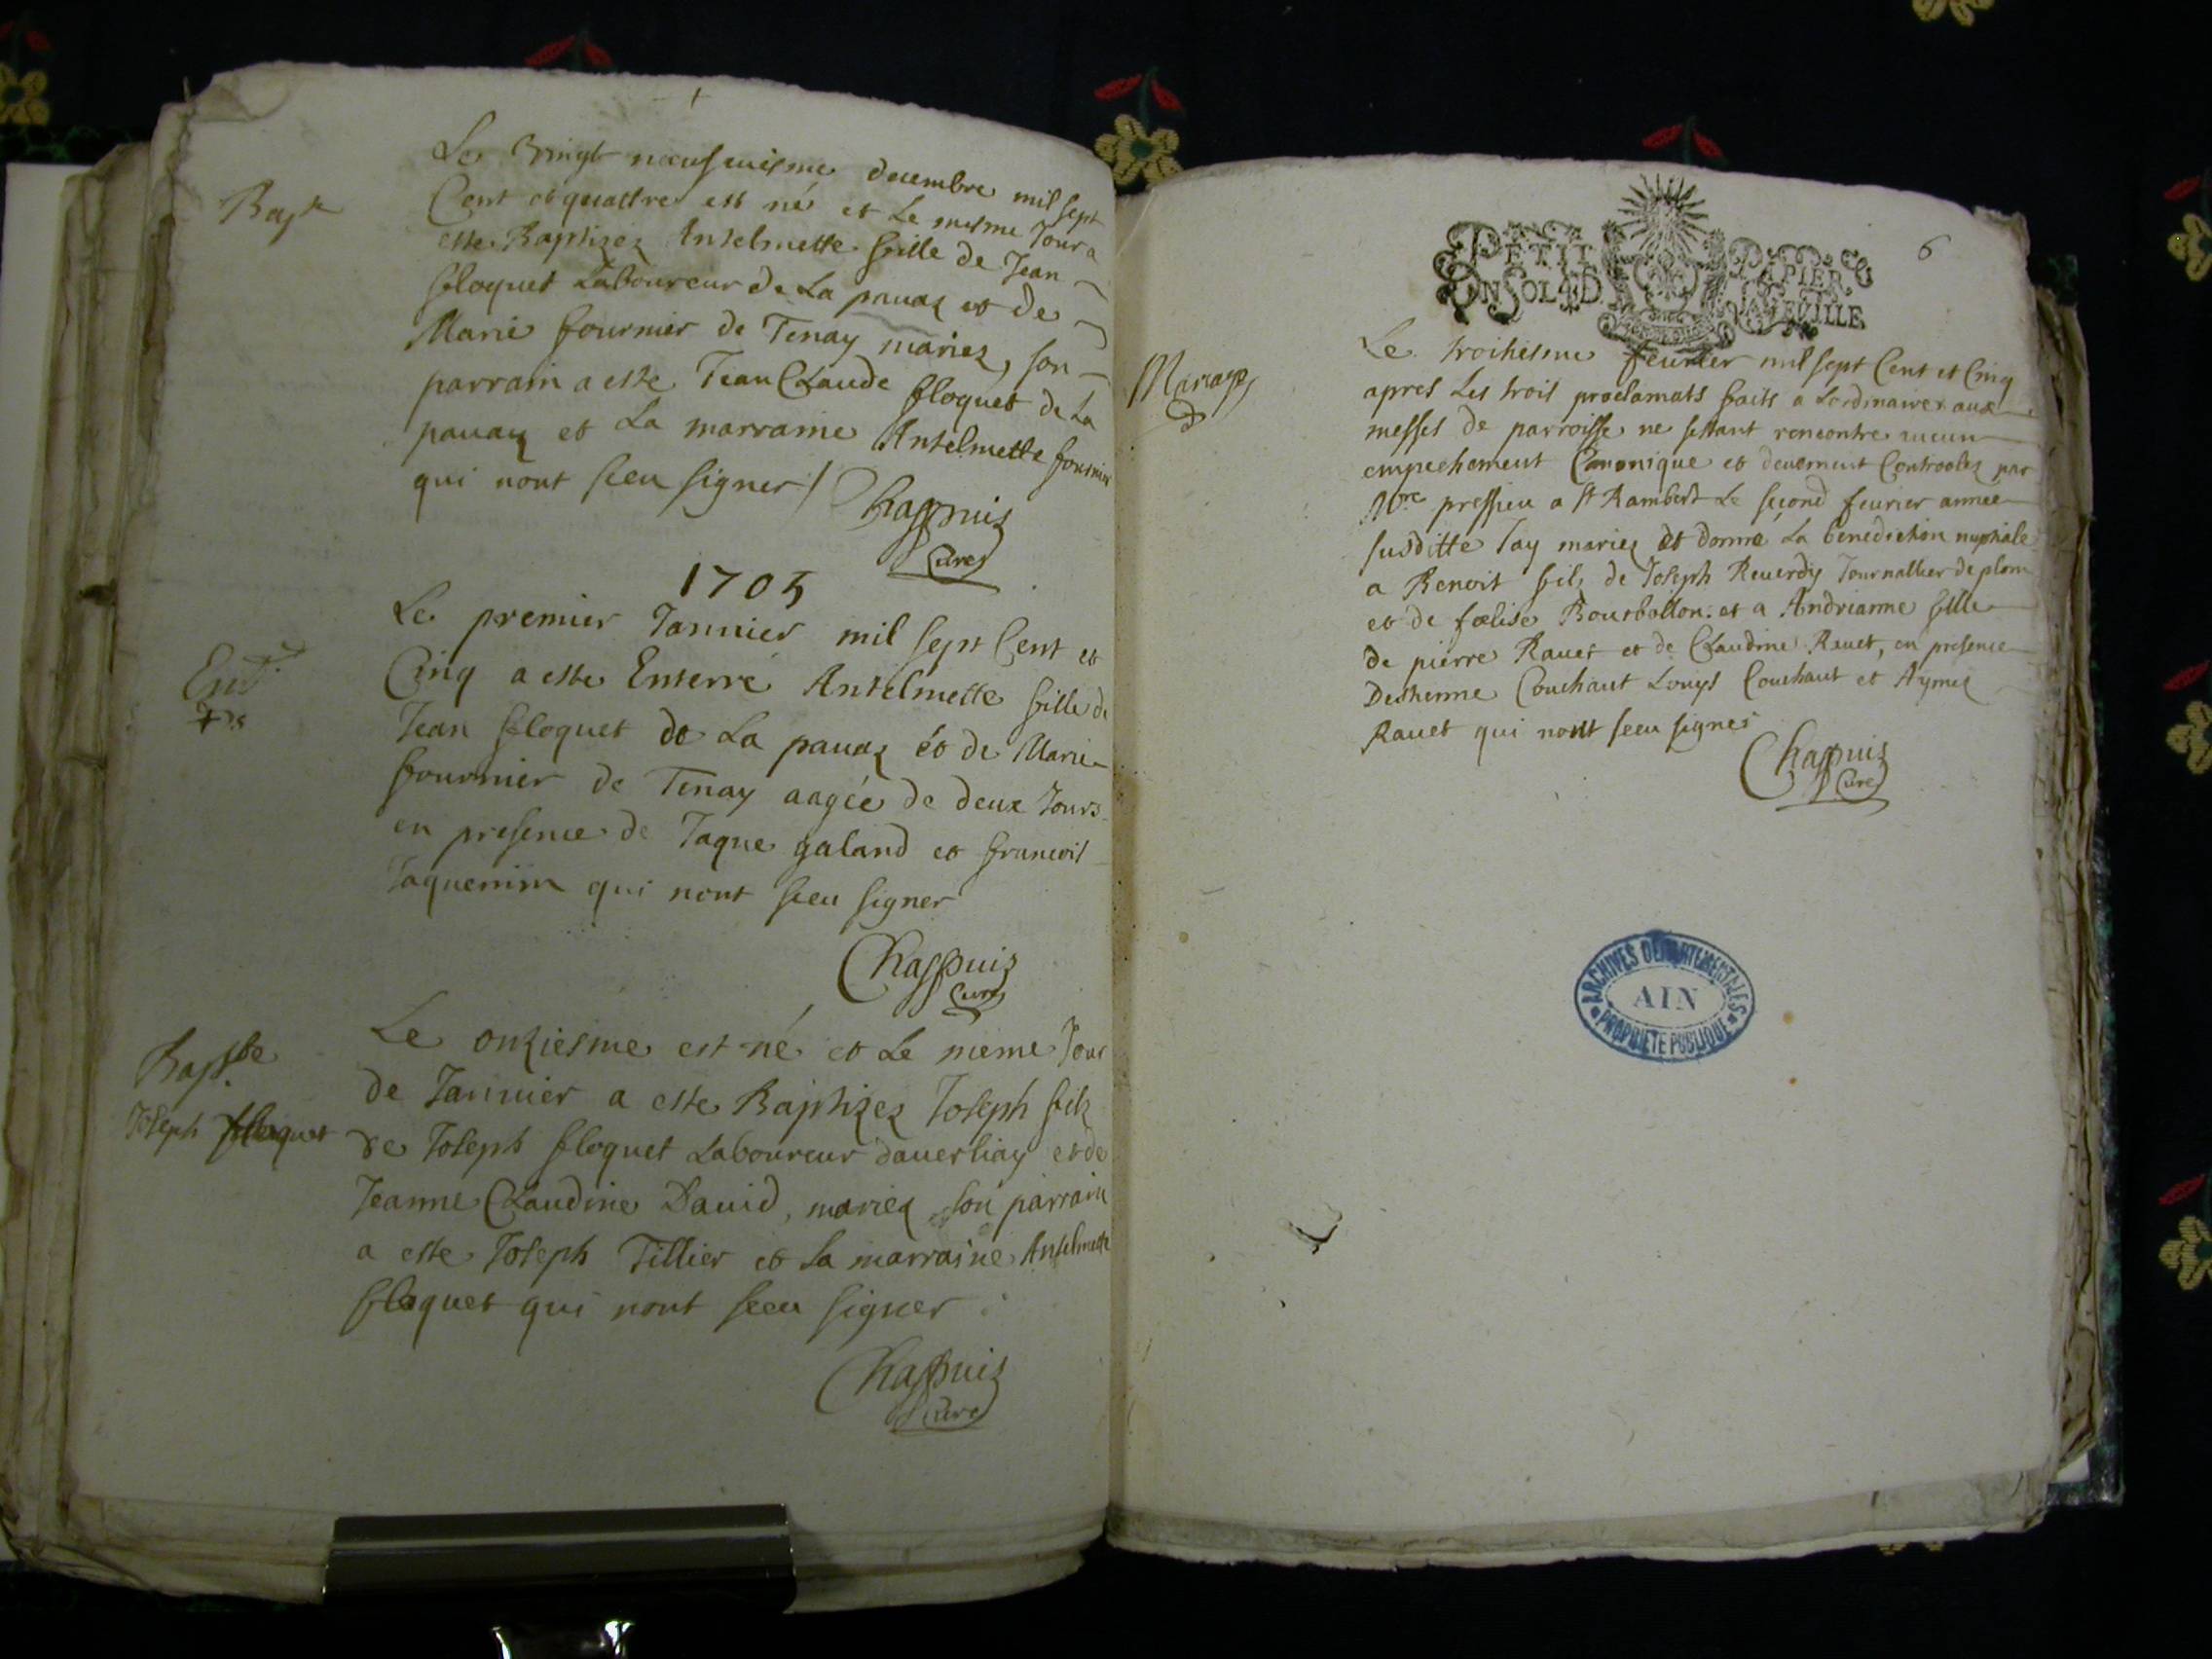 Bapte
Le vingt neufuiesme decembre mil sept
Cent et quattre est né et Le mesme Jour a
esté Baptizez Antelmette fille de Jean
floquet Laboureur de La pauaz et de
Marie fournier de Tenay mariez, son
parrain a esté Jean Claude floquet de La
pauaz et La marraine Antelmette fournier
qui nont sceu signer / Chappuis
Curé
1705
Ent
Le premier Januier mil sept Cent et
Cinq a esté Enterré Antelmette fille de
Jean floquet de La pauaz et de Marie
fournier de Tenay aagée de deux Jours
en presence de Jaque galand et francois
Jaquemin qui nont sceu signer
Chappuis
Curé
Bapte
Joseph floquet
Le onziesme est né et Le meme Jour
de Januier a esté Baptizez Joseph filz
de Joseph floquet Laboureur dauerliaz et de
Jeanne Claudine Dauid, mariez son parrain
a esté Joseph Tillier et La marraine Antelmette
floquet qui nont sceu signer
Chappuis
Curé
6
PETIT PAPIER
UN SOL 4 D. LA FEUILLE
Mariage
Le troisiesme feurier mil sept Cent et Cinq
apres Les trois proclamats faits a Lordinaire aux
messes de parroisse ne sestant rencontre aucun
empechement Canonique et deuement Controolez par
Mre pressieu a St Rambert Le second feurier annee
susditte Jay mariez et donné La benediction nuptiale
a Benoit filz de Joseph Reuerdy Journallier de plom
et de fœlise Bourbollon et a Andrianne fille
de pierre Rauet et de Claudine Rauet, en presence
Destienne Couchaut Louys Couchaut et Aymez
Rauet qui nont sceu signer
Chappuis
Curé
ARCHIVES DÉPARTEMENTALES
AIN
PROPRIÉTÉ PUBLIQUE